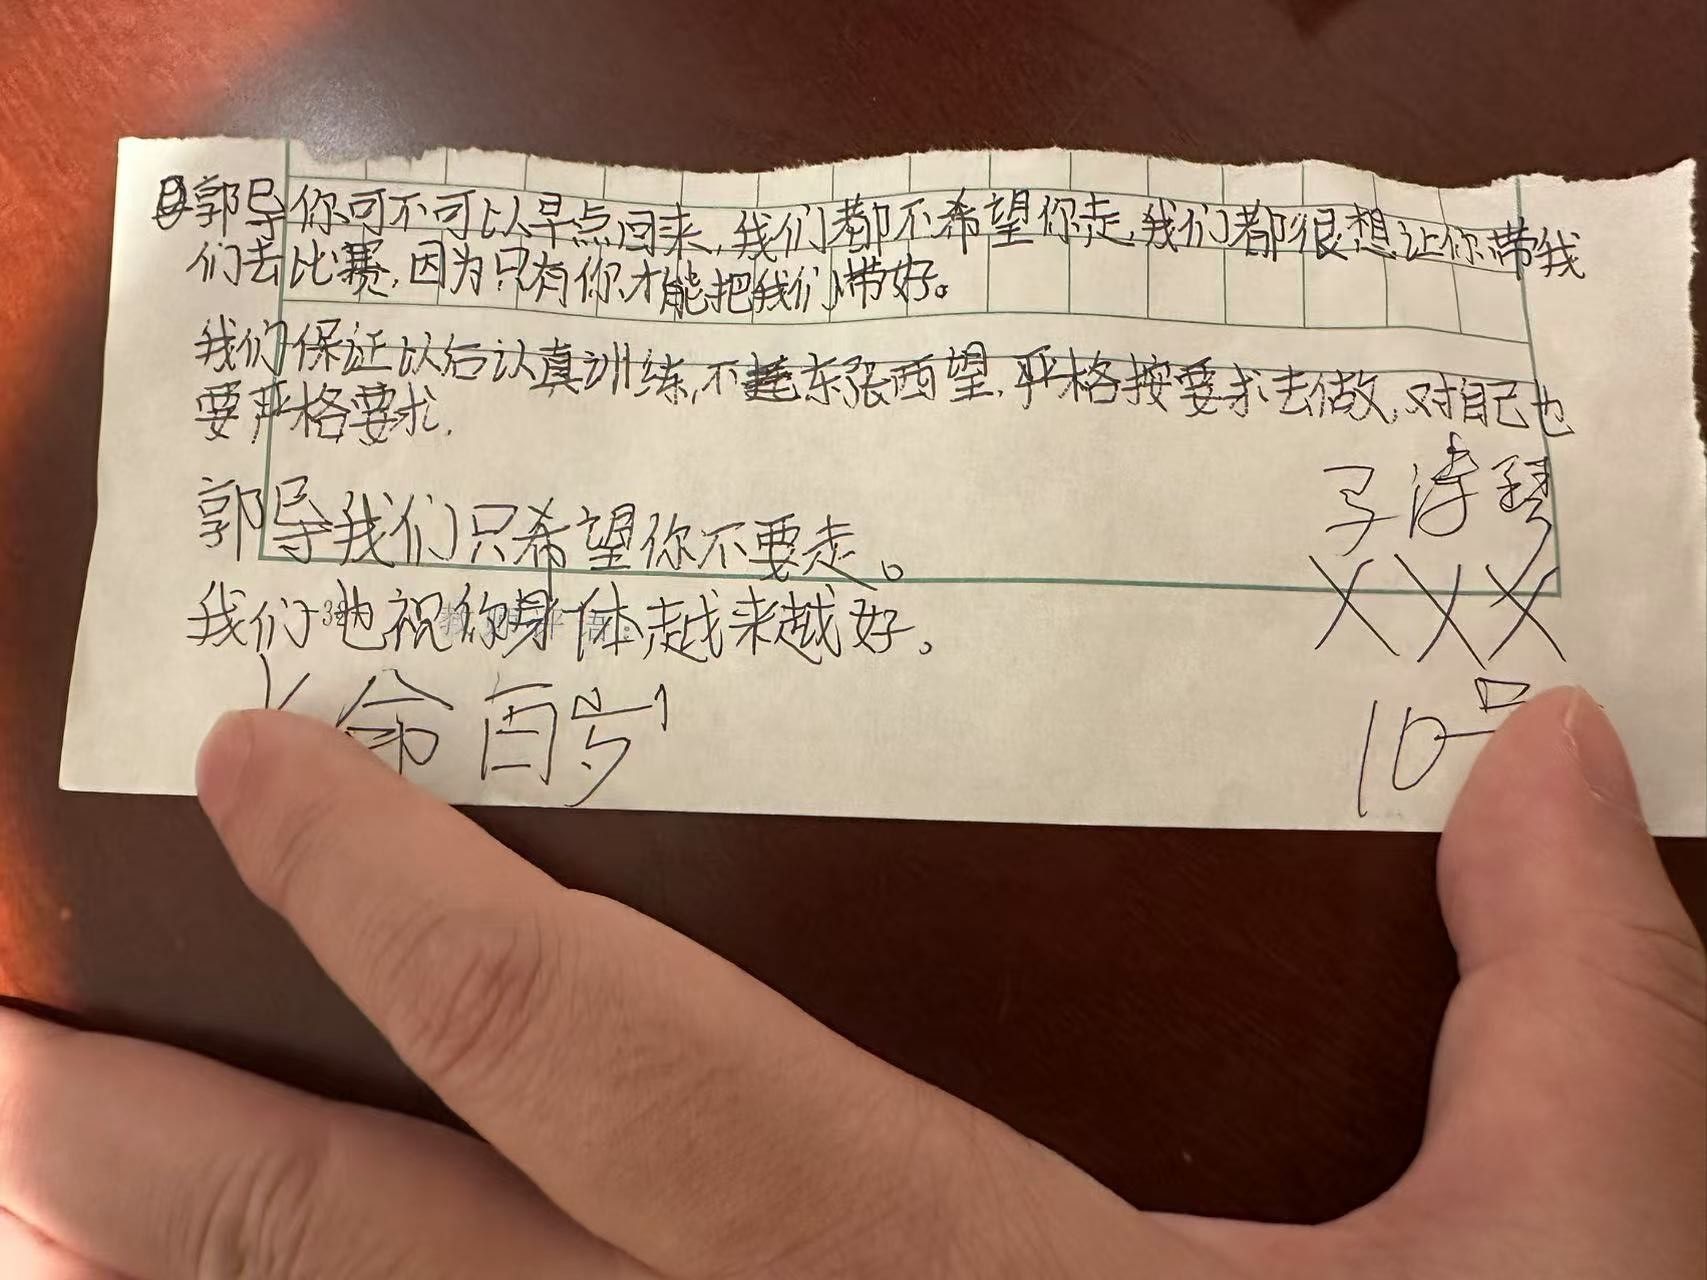 郭导你可不可以早点回来,我们都不希望你走,我们都很想让你带我
们去比赛,因为只有你才能把我们带好。
我们保证以后认真训练,不东张西望,严格按要求去做,对自己也
要严格要求.
郭导我们只希望你不要走。
我们也祝你身体越来越好。
命百岁1
XXX
10号